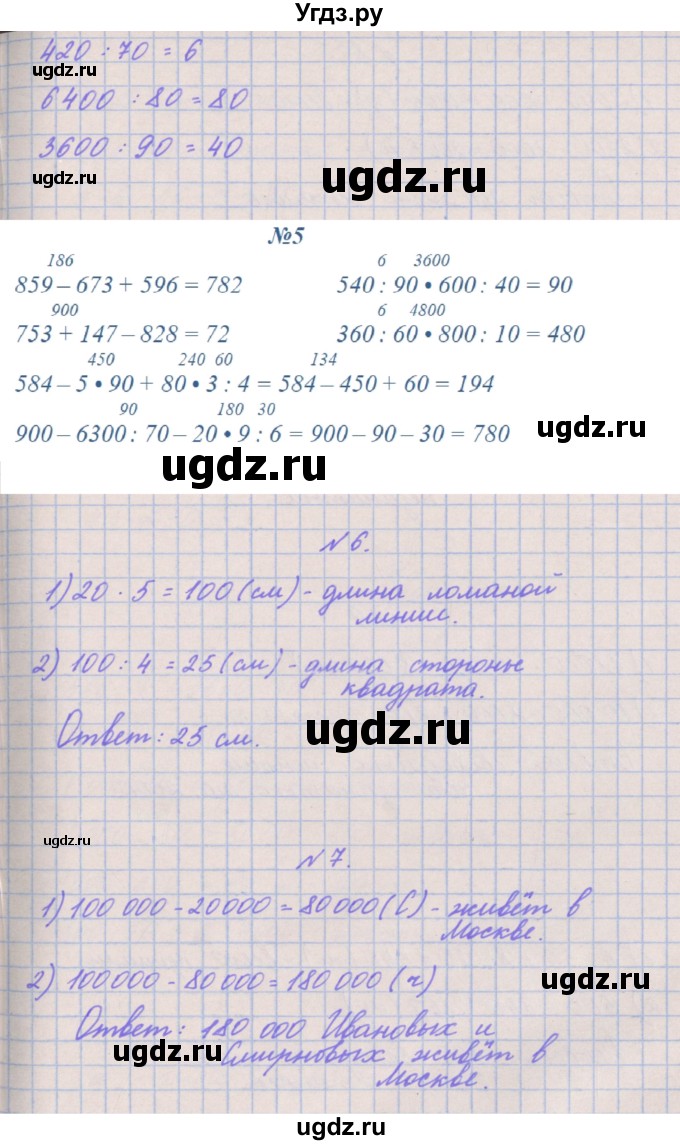 Угдз.ру
420 : 70 = 6
ugdz.ru
6400 : 80 = 80
3600 : 90 = 40
ugdz.ru
ugdz.ru
№5
186
859 – 673 + 596 = 782
6 3600
540 : 90 • 600 : 40 = 90
900
753 + 147 – 828 = 72
6 4800
360 : 60 • 800 : 10 = 480
450 240 60 134
584 – 5 • 90 + 80 • 3 : 4 = 584 – 450 + 60 = 194
90 180 30
900 – 6300 : 70 – 20 • 9 : 6 = 900 – 90 – 30 = 780
ugdz.ru
ugdz.ru
N 6.
1) 20 · 5 = 100 (см) - длина ломаной
линии.
2) 100 : 4 = 25 (см) - длина стороны
квадрата.
Ответ: 25 см.
ugdz.ru
ugdz.ru
N 7.
1) 100 000 - 20 000 = 80 000 (С) - живёт в
Москве.
2) 100 000 - 80 000 = 180 000 (ч)
ugdz.ru
Ответ: 180 000 Ивановых и
Смирновых живёт в
Москве.
ugdz.ru
ugdz.ru